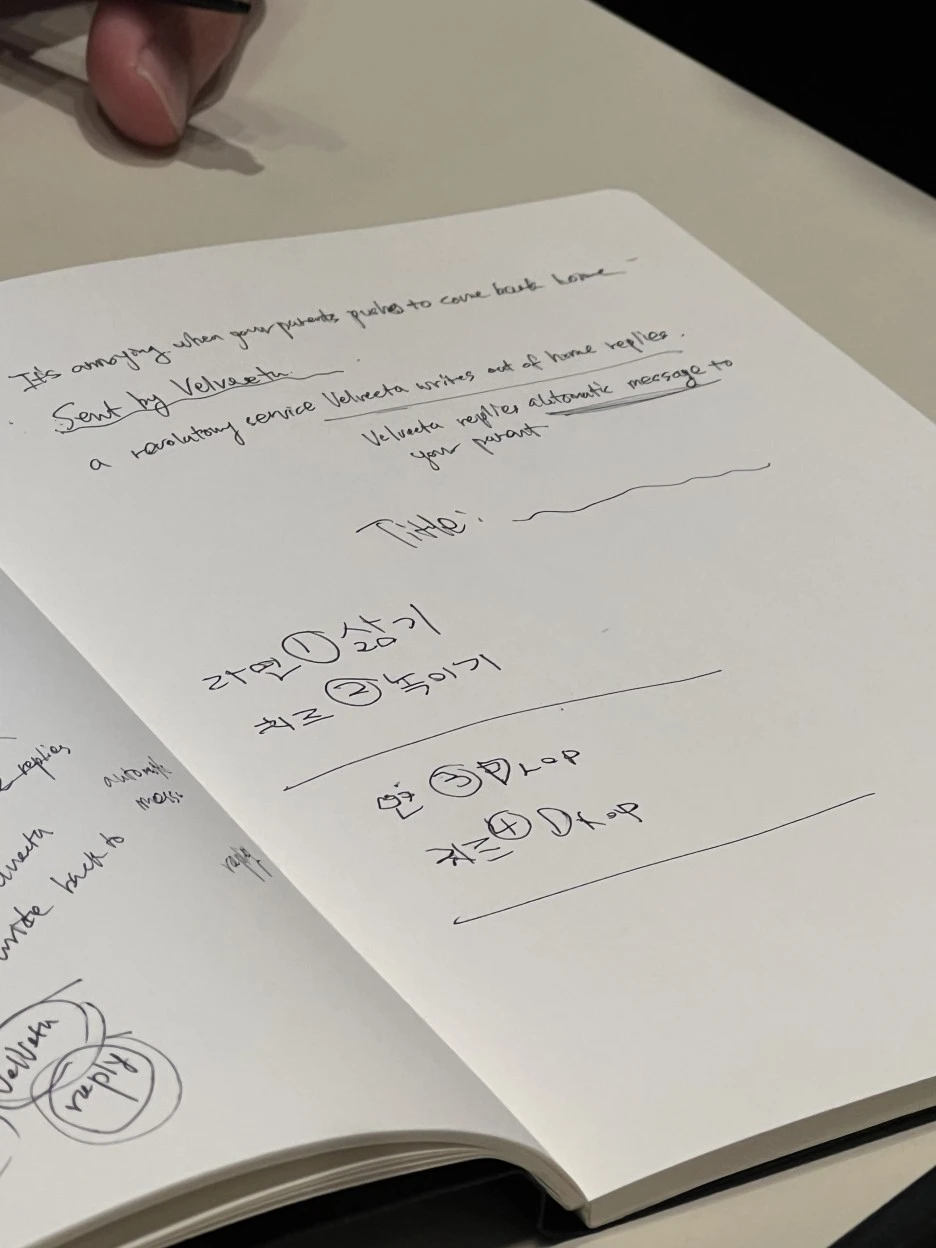 It's annoying when your parents pushes to come back home
Sent by Velveeta.
a revolutionary service Velveeta writes out of home replies.
Velveeta replies automatic message to
your parent
Title:
라면 ① 삶기
치즈 ② 녹이기
면 ③ Drop
치즈 ④ Drop
replies
to
Velveeta
reply